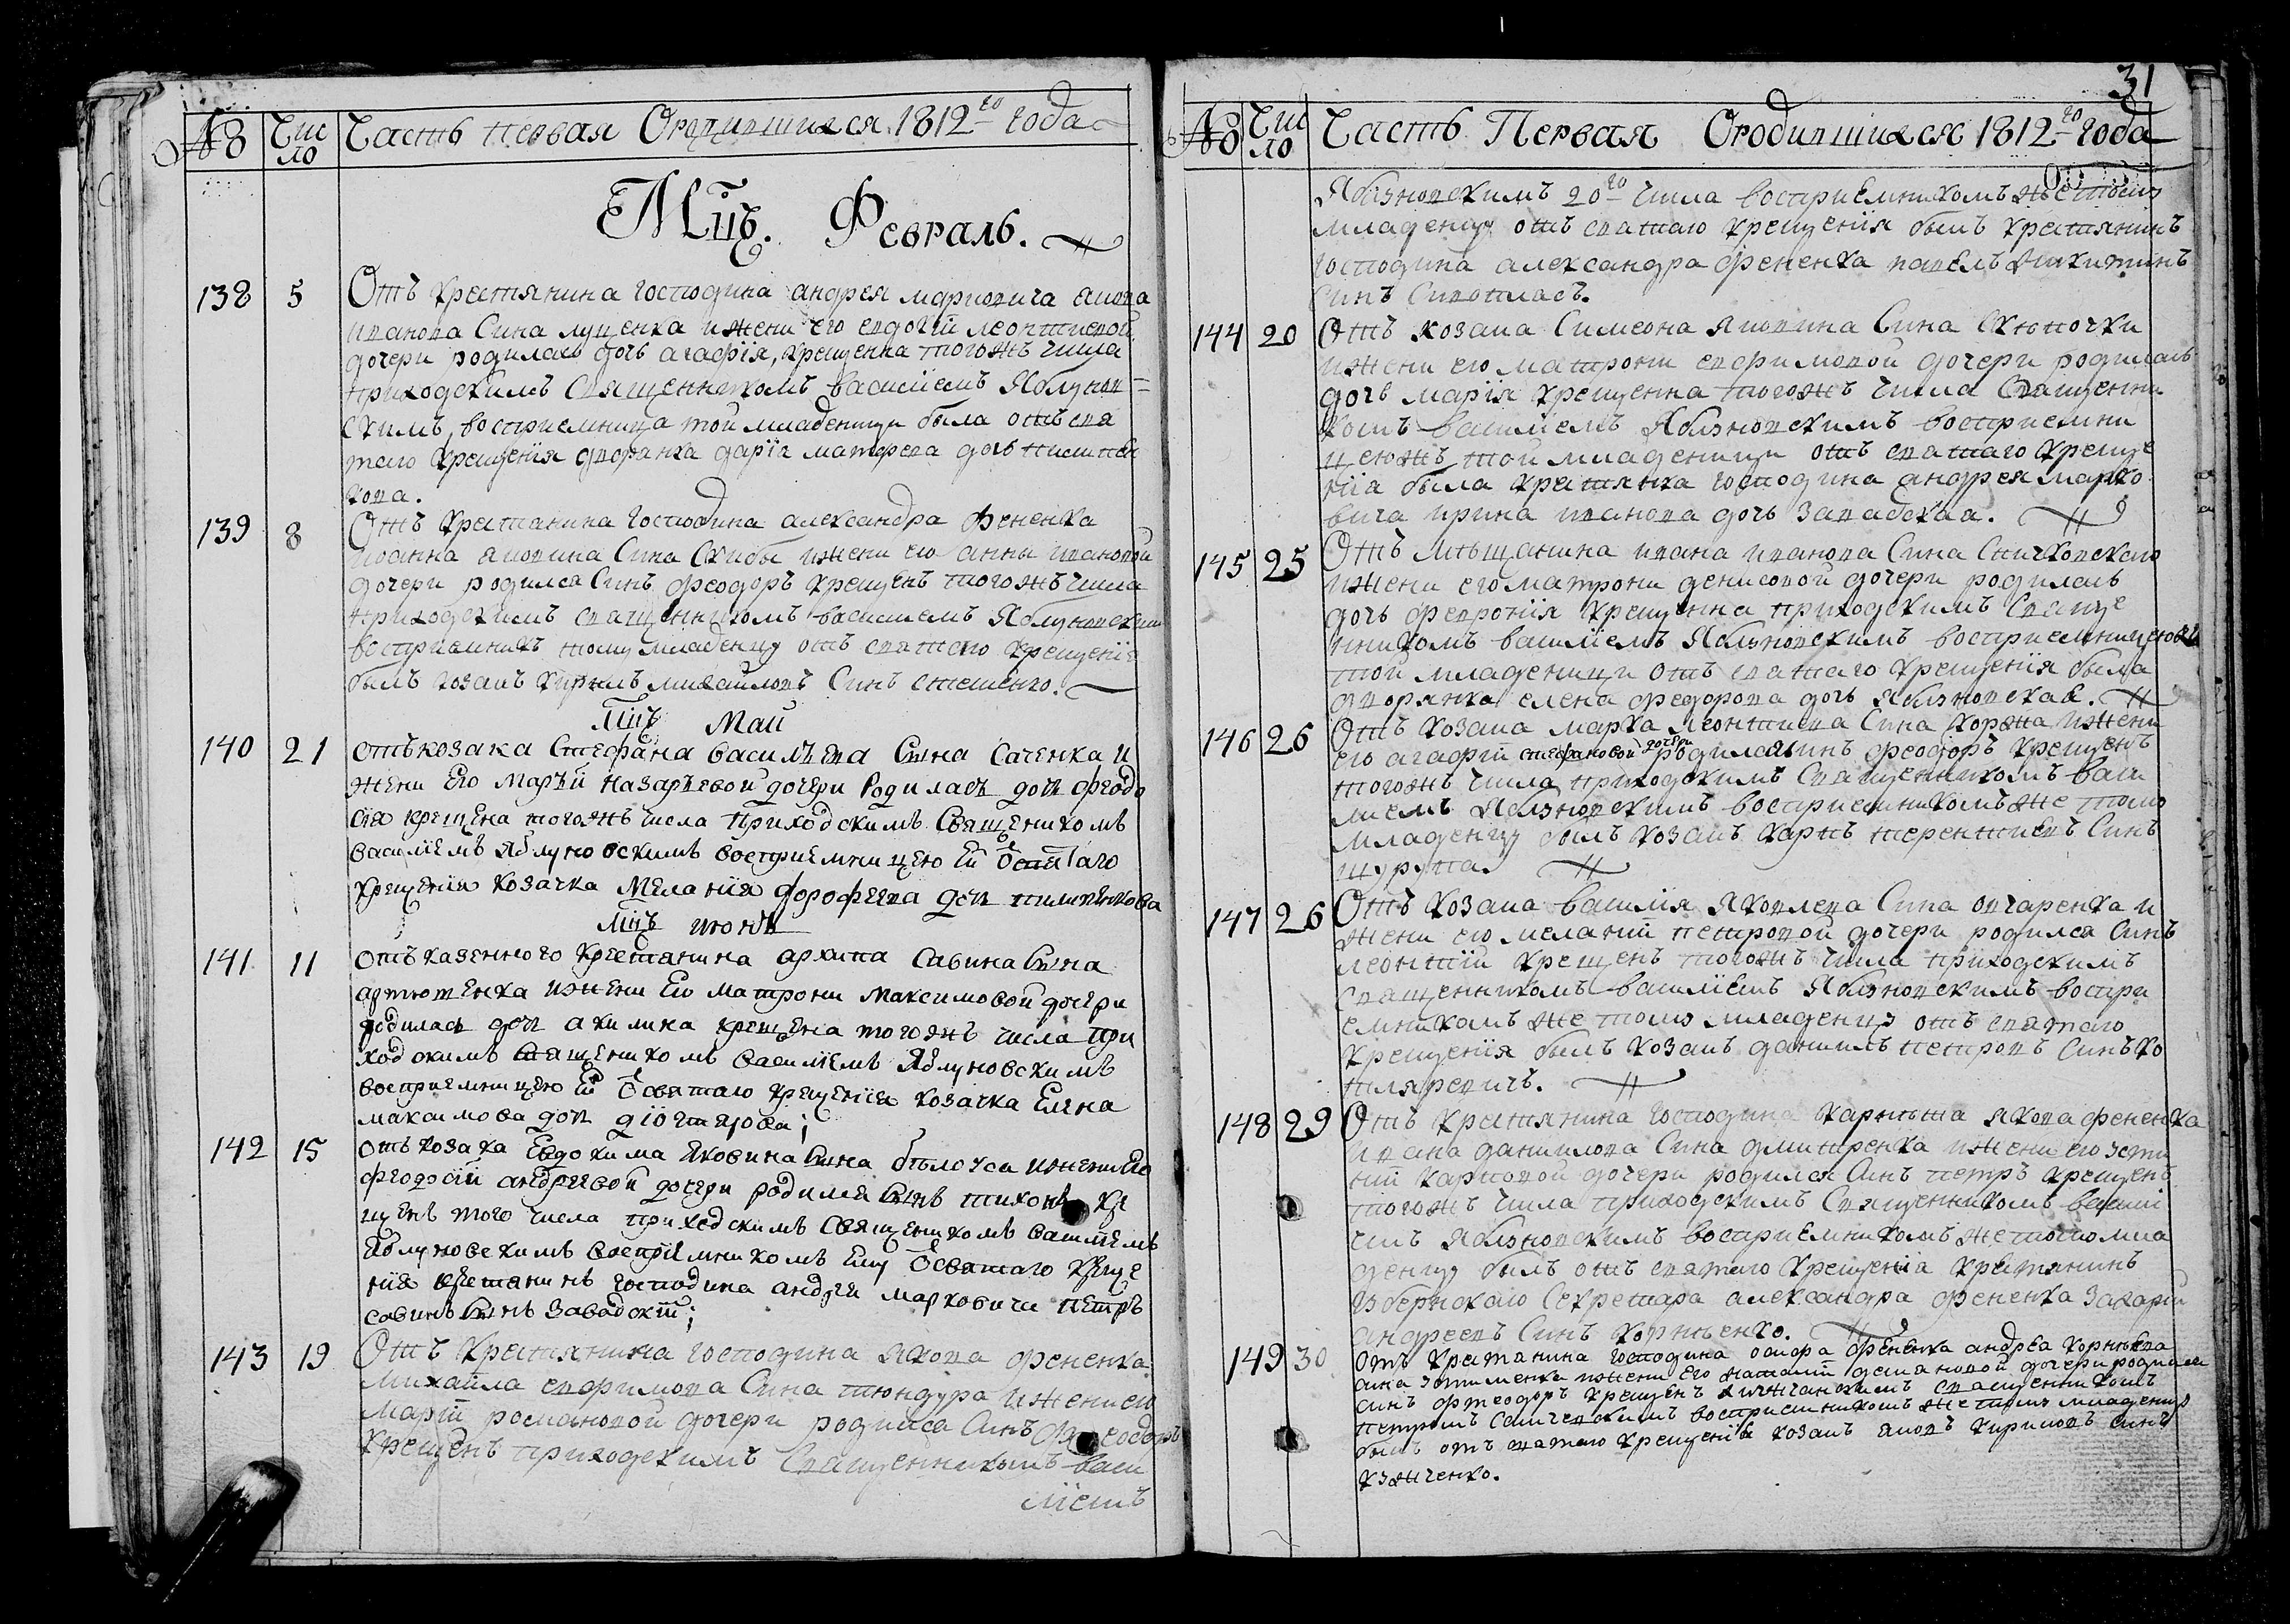 № Число Часть первая О родившихся 1812го года
Мцъ. Февраль.
138 5 Отъ крестянина господина андрея марковича якова
иванова сина луценка и жени его евдокіи леонтиевой
дочери родилась дочь агафія, крещенна тогожъ числа
приходскимъ священникомъ василіемъ Яблунов=
скимъ, восприемница той младеници била отъ свя
таго крещенія дворянка дарія матфеева дочь
кова.
139 8 Отъ крестянина господина александра фененка
иоанна яковина сина скиби и жени его анны ивановой
дочери родился синъ феодоръ крещенъ тогожъ числа
приходскимъ священникомъ василиемъ Яблуновским
восприемникъ тому младенцу отъ святаго крещенія
былъ козакъ кирилъ михайловъ синъ стешенко.
Мцъ Май
140 21 отъ козака Стефана васильева сина саченка и
жени его маріи назарьевой дочери родилась дочь феодо
сія крещена тогожъ числа приходскимъ священикомъ
василіемъ яблуновскимъ восприемницею ей от святаго
крещенія козачка меланія дорофеева дочь пилипенкова
Мцъ июнь
141 11 отъ казенного крестянина архипа савина сина
артюшенка и жени его матрони максимовой дочери
родилась дочь акилина крещена тогожъ числа при
ходскимъ священикомъ василіемъ яблуновскимъ
восприемницею ей от святаго крещенія козачка елена
максимова дочь дігтярова;
142 15 отъ козака евдокима яковина сина білоуса и жени его
феодосіи андреевой дочери родился синъ тихонъ кре
щенъ того числа приходскимъ священикомъ василіемъ
яблуновскимъ восприемникомъ ему от святаго креще
нія крестянинъ господина андрея марковича петръ
савинъ синъ завадскій;
143 19 Отъ крестянина господина якова фененка
михайла евфимова сина тюндура и жени его
маріи романовой дочери родился синъ феодоръ
крещенъ приходскимъ священникомъ васи
ліемъ
31
№ Число Часть Первая О родившихся 1812го года
Яблуновскимъ 20го числа восприемникомъ же тому
младенцу отъ святаго крещенія былъ крестянинъ
господина александра фененка павелъ никитинъ
синъ
144 20 Отъ козака симеона яковина сина скюпочки
и жени его матрони евфимовой дочери родилась
дочь марія крещенна тогожъ числа священни
комъ василіемъ яблуновскимъ восприемни
цеюжъ той младеници отъ святаго креще
нія была крестянка господина андрея марко
вича ирина иванова дочь завадская.
145 25 Отъ мѣщанина ивана иванова сина сничковского
и жени его матрони денисовой дочери родилась
дочь февронія крещенна приходскимъ свяще
никомъ василіемъ яблуновскимъ восприемницеюжъ
той младеници отъ святаго крещенія была
дворянка елена федорова дочь яблуновская.
146 26 Отъ козака марка леонтиева сина коржа и жени
его агафіи стефановой дочери родился синъ феодоръ крещенъ
тогожъ числа приходскимъ священникомъ васи
лиемъ яблуновскимъ восприемникомъ же тому
младенцу былъ козакъ карпъ терентиевъ синъ
щурупа.
147 26 Отъ козака василія яковлева сина овчаренка и
жени его меланіи петровой дочери родился синъ
леонтій крещенъ тогожъ числа приходскимъ
священникомъ василиемъ яблуновскимъ воспри
емникомъ же тому младенцу отъ святаго
крещенія былъ козакъ данилъ петровъ синъ ко
тляревичъ.
148 29 Отъ крестянина господина якова фененка
ивана данилова сина дмитренка и жени его
карповой дочери родился синъ петръ крещенъ
тогожъ числа приходскимъ священникомъ васили
емъ яблуновскимъ восприемникомъ же тому мла
денцу былъ отъ святаго крещенія крестянинъ
губернского секретара александра фененка захарій
андреевъ синъ корнѣенко.
149 30 отъ крестянина господина фененка андрея корнѣева
сина и жени его наталіи демяновой дочери родился
синъ феодоръ крещенъ священникомъ
петромъ восприемникомъ же тому младенцу
былъ отъ святаго крещенія козакъ яковъ кириловъ синъ
кужченко.